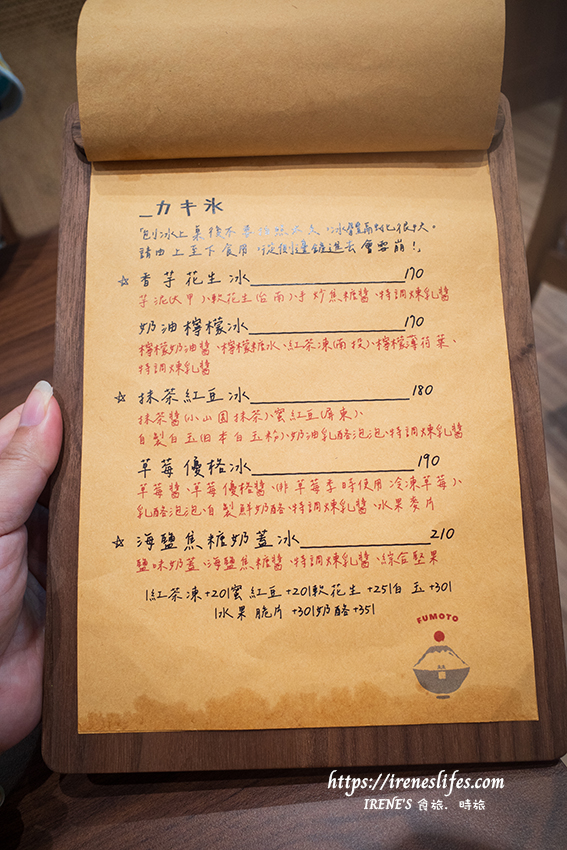 _カキ氷
請由上至下食用,從側邊鏟進去會雪崩!」
☆香芋花生冰 170
芋泥(大甲)、軟花生(台南)、手炒焦糖醬、特調煉乳醬
奶油檸檬冰 170
檸檬奶油醬、檸檬糖水、紅茶凍(南投)、檸檬薄荷葉、
特調煉乳醬
☆抹茶紅豆冰 180
抹茶醬(小山園抹茶)、蜜紅豆(屏東)、
自製白玉(日本白玉粉)、奶油乳酪泡泡、特調煉乳醬
草莓優格冰 190
草莓醬、草莓優格醬、(非草莓季時使用冷凍草莓)、
乳酪泡泡、自製鮮奶酪、特調煉乳醬、水果麥片
☆海鹽焦糖奶蓋冰 210
鹽味奶蓋、海鹽焦糖醬、特調煉乳醬、綜合堅果
|紅茶凍+20|蜜紅豆+20|軟花生+25|白玉+30|
|水果脆片+30|奶酪+35|
FUMOTO
https://ireneslifes.com
IRENE'S 食旅.時旅